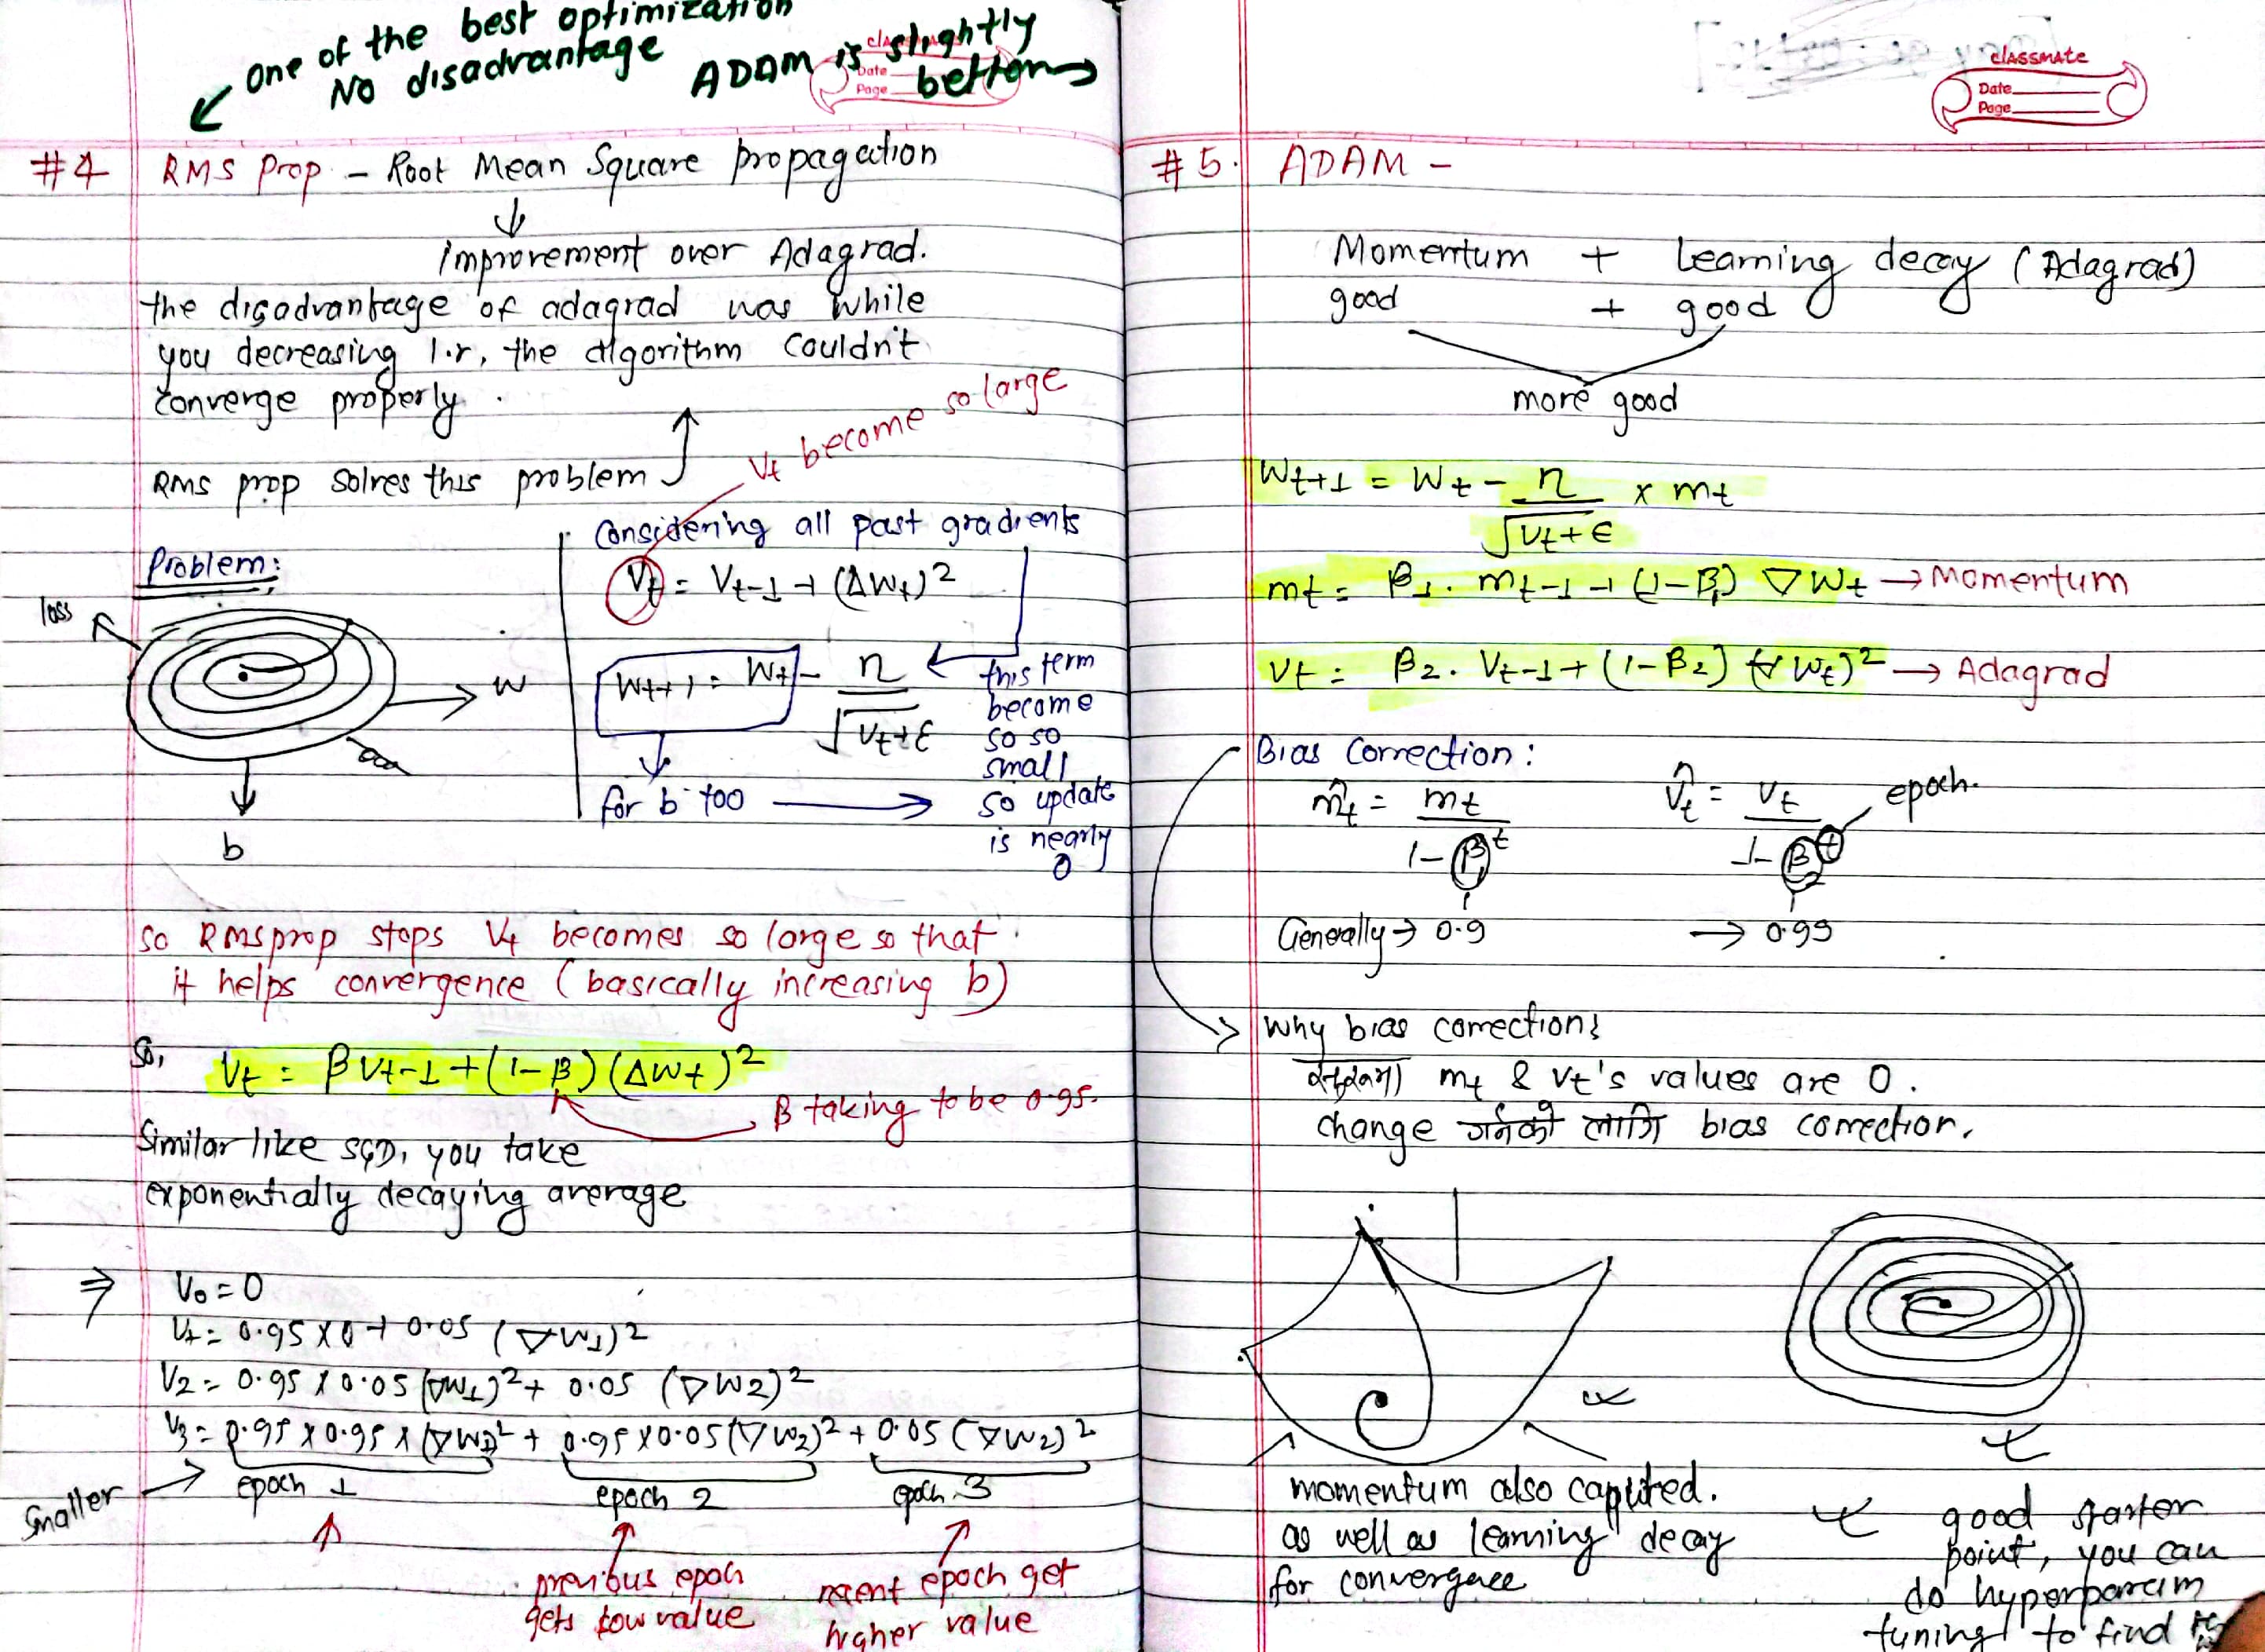 one of the best optimization
No disadvantage
ADAM is slightly
better
classmate
Date
Page
#4 RMS Prop - Root Mean Square propagation
improvement over Adagrad.
the disadvantage of adagrad was while
you decreasing l.r, the algorithm couldn't
converge properly.
RMS prop solves this problem
Vt become so large
Problem:
loss
w
b
Considering all past gradients
Vt = Vt-1 + (ΔWt)²
Wt+1 = Wt - η / √Vt+ε
this term
become
so so
small
so update
is nearly
0
for b too
so Rmsprop stops Vt becomes so large so that
it helps convergence (basically increasing b)
So, Vt = βVt-1 + (1-β)(ΔWt)²
β taking to be 0.95.
Similar like SGD, you take
exponentially decaying average
⇒ V0 = 0
V1 = 0.95 × 0 + 0.05 (∇W1)²
V2 = 0.95 × 0.05 (∇W1)² + 0.05 (∇W2)²
V3 = 0.95 × 0.95 × (∇W1)² + 0.95 × 0.05 (∇W2)² + 0.05 (∇W2)²
Smaller → epoch 1
epoch 2
epoch 3
previous epoch
gets low value
recent epoch get
higher value
classmate
Date
Page
#5. ADAM -
Momentum + Learning decay (Adagrad)
good + good
more good
Wt+1 = Wt - η / √Vt+ε × mt
mt = β1 . mt-1 + (1-β1) ∇Wt → Momentum
Vt = β2 . Vt-1 + (1-β2) (∇Wt)² → Adagrad
Bias Correction:
m̂t = mt / 1-β1^t
V̂t = Vt / 1-β2^t
epoch.
Generally → 0.9
→ 0.99
Why bias correction?
mt & Vt's values are 0.
change गर्नको लागि bias correction.
momentum also captured.
as well as learning decay
for convergence
good starter
point, you can
do hyperparam
tuning to find